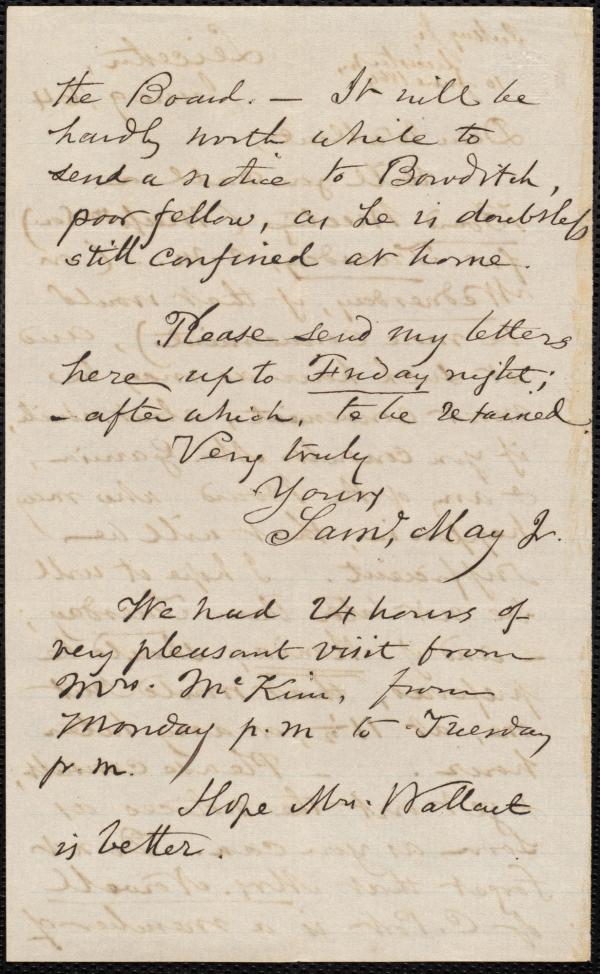 the Board. — It will be
hardly worth while to
send a notice to Bowditch,
poor fellow, as he is doubtless
still confined at home.
Please send my letters
here up to Friday night;
– after which, to be retained.
Very truly
Yours
Saml. May Jr.
We had 24 hours of
very pleasant visit from
Mrs. McKim, from
Monday p.m to Tuesday
p.m.
Hope Mrs. Wallcut
is better.